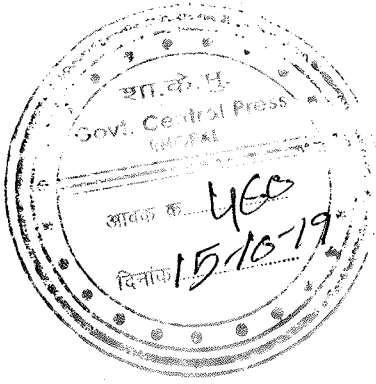 शा.के.मु.
Govt. Central Press
BHOPAL
आवक क.......460
दिनांक 15-10-19